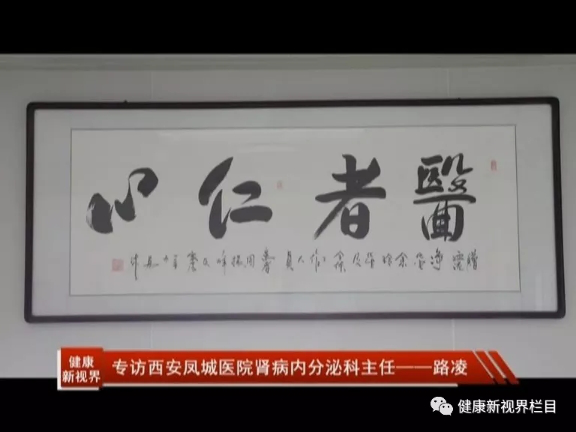 醫者仁心
健康
新视界
专访西安凤城医院肾病内分泌科主任——路凌
健康新视界栏目